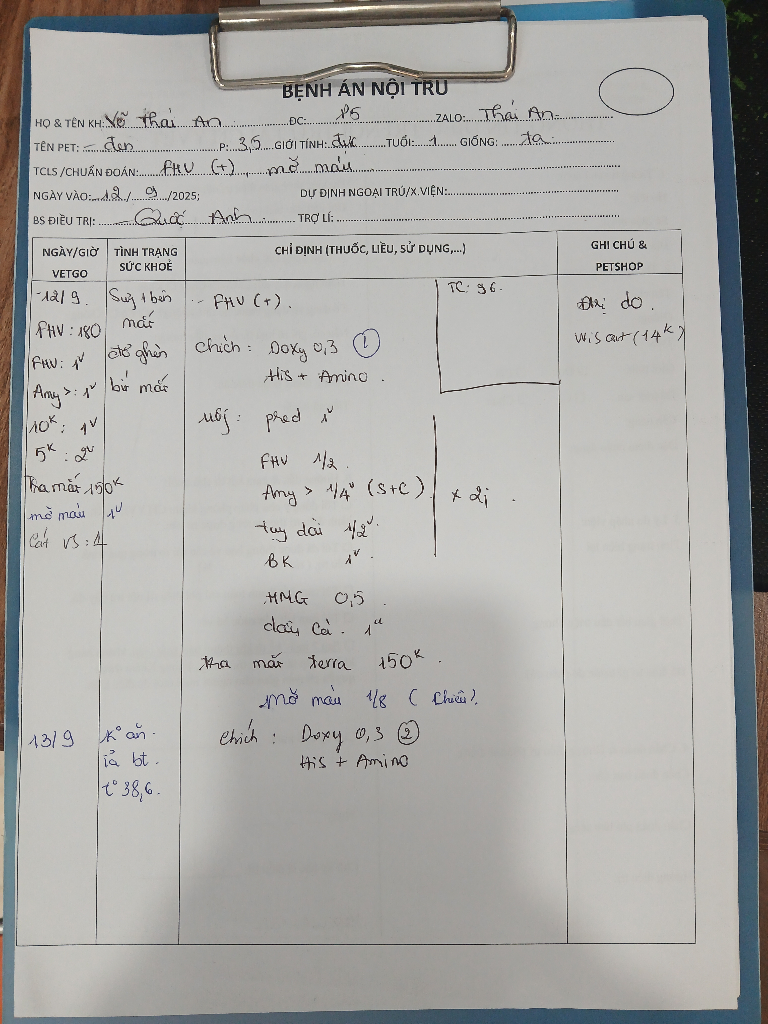 BỆNH ÁN NỘI TRÚ
HỌ & TÊN KH: Võ Thái An ĐC: P5 ZALO: Thái An
TÊN PET: đen P: 3,5 GIỚI TÍNH: đực TUỔI: 1 GIỐNG: ta
TCLS /CHUẨN ĐOÁN: FHV (+), mỡ máu
NGÀY VÀO: 12 / 9 /2025; DỰ ĐỊNH NGOẠI TRÚ/X.VIỆN:
BS ĐIỀU TRỊ: Quốc Anh TRỢ LÍ:
NGÀY/GIỜ
VETGO
TÌNH TRẠNG
SỨC KHOẺ
CHỈ ĐỊNH (THUỐC, LIỀU, SỬ DỤNG,...)
GHI CHÚ &
PETSHOP
12/9.
FHV: 180
FHV: 1v
Amy >: 1v
10K: 1v
5K: 2v
Tra mắt 150K
mỡ máu 1v
Cát VS: 1
mắt
đổ ghèn
bứ mắt
FHV (+).
chích: Doxy 0,3 ①
His + Amino.
uống: pred 1v
FHV 1/2.
Amy > 1/4v (S+C)
tuy dài 1/2v
BK 1v.
HMG 0,5.
1u
x 2i.
tra mắt terra 150K.
Mỡ máu 1/8 (Chiều).
TC: 96.
do.
(14K)
13/9
K° ăn.
ỉa bt.
t° 38,6.
Chích: Doxy 0,3 ②
His + Amino